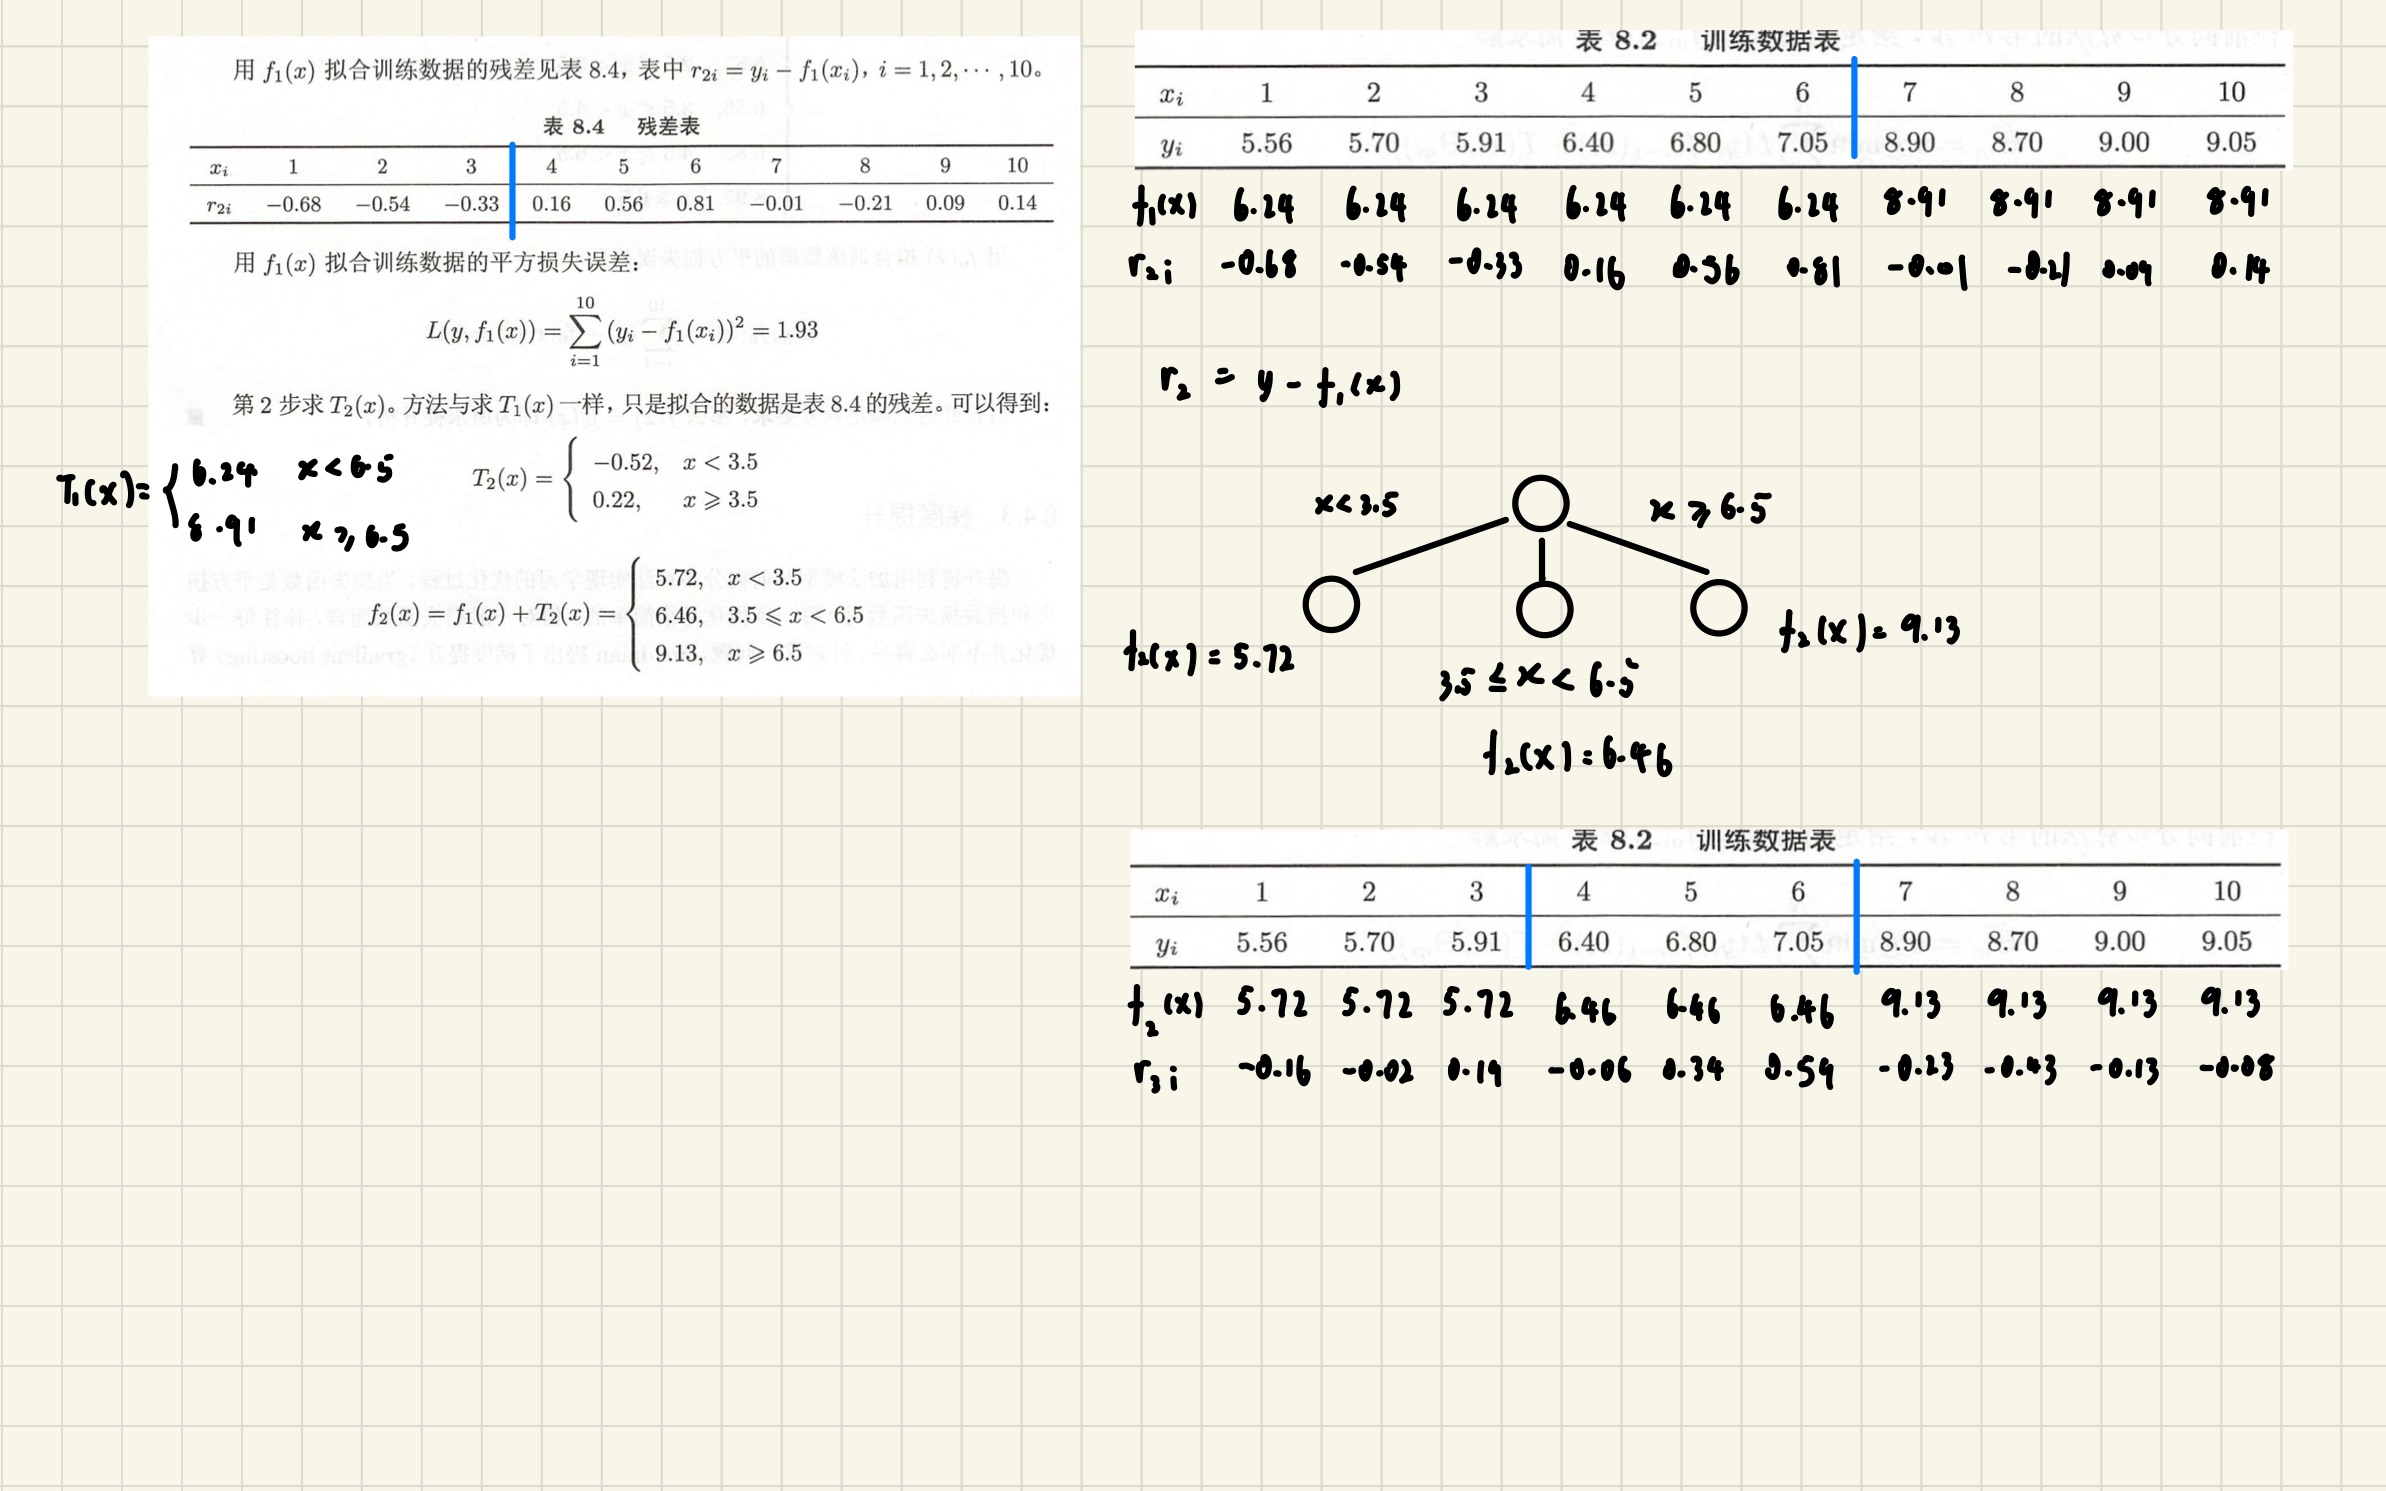 用 f₁(x) 拟合训练数据的残差见表 8.4，表中 r₂ᵢ = yᵢ − f₁(xᵢ)，i = 1, 2, ⋯ , 10。
表 8.4 残差表
xᵢ 1 2 3 4 5 6 7 8 9 10
r₂ᵢ −0.68 −0.54 −0.33 0.16 0.56 0.81 −0.01 −0.21 0.09 0.14
用 f₁(x) 拟合训练数据的平方损失误差：
L(y, f₁(x)) = ∑_{i=1}^{10} (yᵢ − f₁(xᵢ))² = 1.93
第 2 步求 T₂(x)。方法与求 T₁(x) 一样，只是拟合的数据是表 8.4 的残差。可以得到：
T₁(x) = { 6.24 x < 6.5
8.91 x ⩾ 6.5
T₂(x) = { −0.52, x < 3.5
0.22, x ⩾ 3.5
f₂(x) = f₁(x) + T₂(x) = { 5.72, x < 3.5
6.46, 3.5 ⩽ x < 6.5
9.13, x ⩾ 6.5
表 8.2 训练数据表
xᵢ 1 2 3 4 5 6 7 8 9 10
yᵢ 5.56 5.70 5.91 6.40 6.80 7.05 8.90 8.70 9.00 9.05
f₁(x) 6.24 6.24 6.24 6.24 6.24 6.24 8.91 8.91 8.91 8.91
r₂ᵢ -0.68 -0.54 -0.33 0.16 0.56 0.81 -0.01 -0.21 0.09 0.14
r₂ = y - f₁(x)
x < 3.5
x ⩾ 6.5
f₂(x) = 5.72
3.5 ≤ x < 6.5
f₂(x) = 6.46
f₂(x) = 9.13
表 8.2 训练数据表
xᵢ 1 2 3 4 5 6 7 8 9 10
yᵢ 5.56 5.70 5.91 6.40 6.80 7.05 8.90 8.70 9.00 9.05
f₂(x) 5.72 5.72 5.72 6.46 6.46 6.46 9.13 9.13 9.13 9.13
r₃ᵢ -0.16 -0.02 0.19 -0.06 0.34 0.59 -0.23 -0.43 -0.13 -0.08